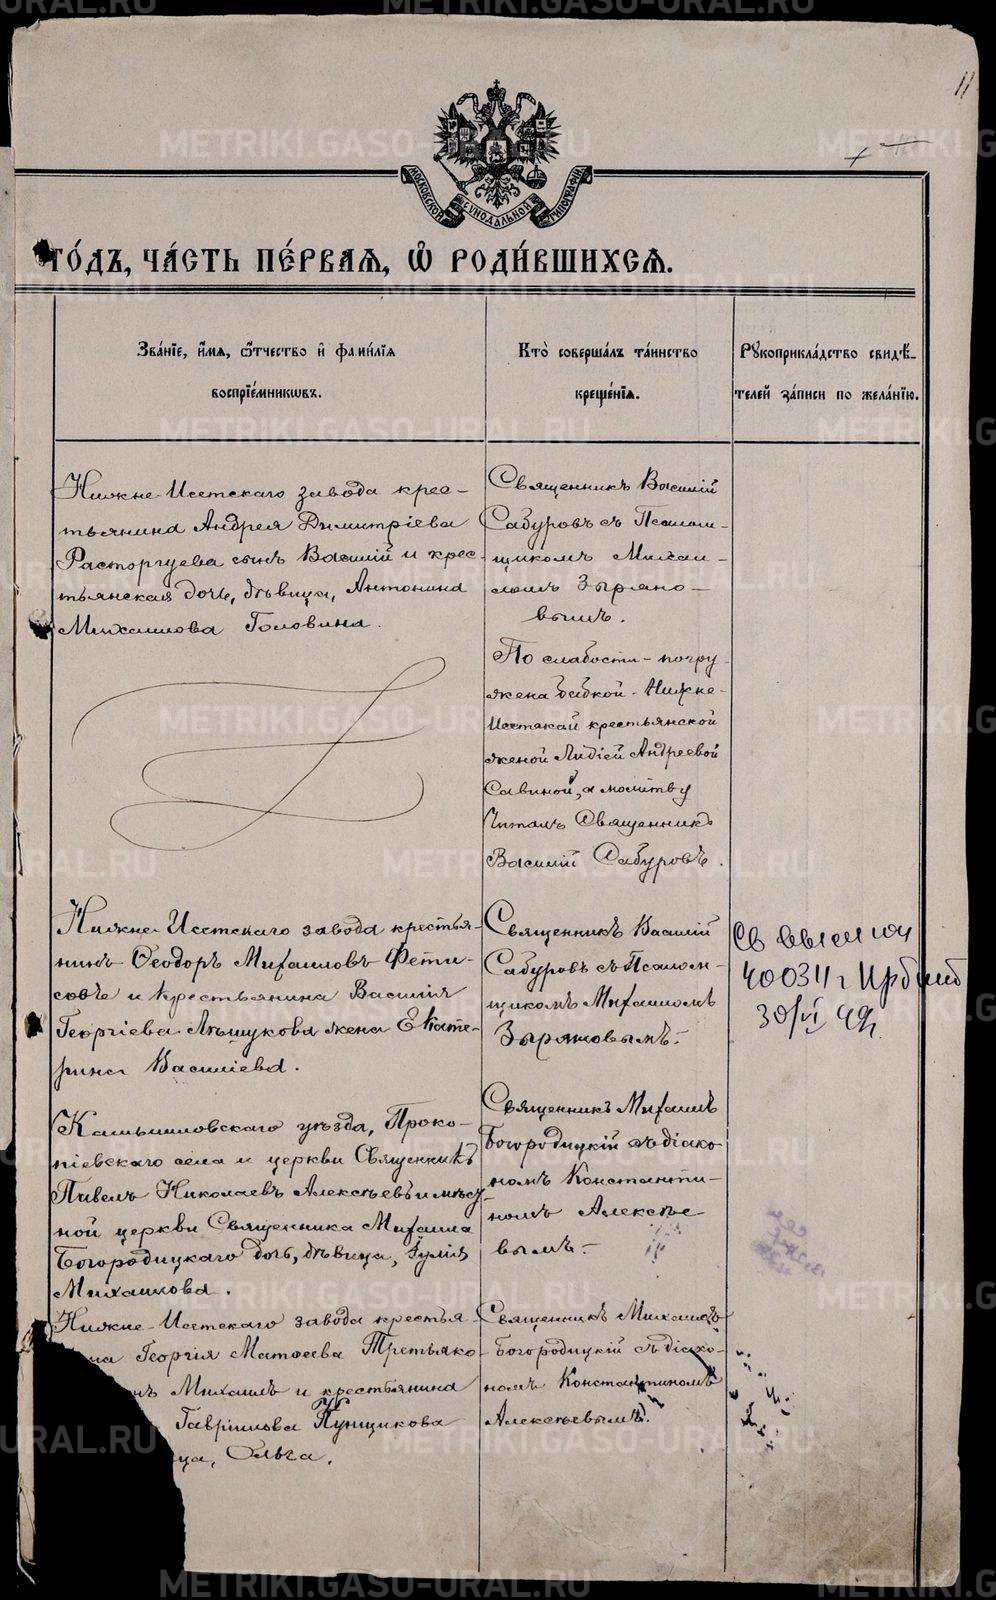 11
МОСКОВСКОЙ СѴНОДАЛЬНОЙ ТИПОГРАФІИ
го́дъ, ча́сть пе́рваѧ, ѽ роди́вшихсѧ.
Зва́нїе, и҆́мѧ, ѻ҆́тчество и҆ фами́лїѧ
воспрїе́мникѡвъ.
Кто̀ соверша́лъ та́инство
креще́нїѧ.
Рꙋкоприкла́дство свидѣ́-
телей за́писи по жела́нїю.
Нижне-Исетскаго завода крес-
тьянина Андрея Димитріева
Расторгуева сынъ Василій и крес-
тьянская дочь, дѣвица, Антонина
Михаилова Головина.
Священникъ Василій
Сабуровъ съ Псалом-
щикомъ Михаи-
ломъ Зыряно-
вымъ.
По слабости - погру-
жена бабкой - Нижне-
Исетской крестьянской
женой Лидіей Андреевой
Савиной, а молитву
читалъ Священникъ
Василій Сабуровъ.
Нижне-Исетскаго завода крестья-
нинъ Ѳеодоръ Михаиловъ Фети-
совъ и крестьянина Василія
Георгіева жена Екате-
рина Василіева.
Священникъ Василій
Сабуровъ съ Псалом-
щикомъ Михаиломъ
Зыряновымъ.-
Св
30/VI 49г.
Камышловскаго уѣзда, Проко-
піевскаго села и церкви Священникъ
Павелъ Николаевъ Алексѣевъ и мѣст-
ной церкви Священника Михаила
Богородицкаго дочь, дѣвица, Юлія
Михаилова.
Священникъ Михаилъ
Богородицкій съ діако-
номъ Константи-
номъ Алексѣе-
вымъ.-
Нижне-Исетскаго завода крестья-
Георгія Матѳеева Третьяко-
Михаилъ и крестьянина
Гавріилова Пунщикова
Ольга.
Священникъ Михаилъ
Богородицкій съ діако-
номъ Константиномъ
Алексѣевымъ.
METRIKI.GASO-URAL.RU